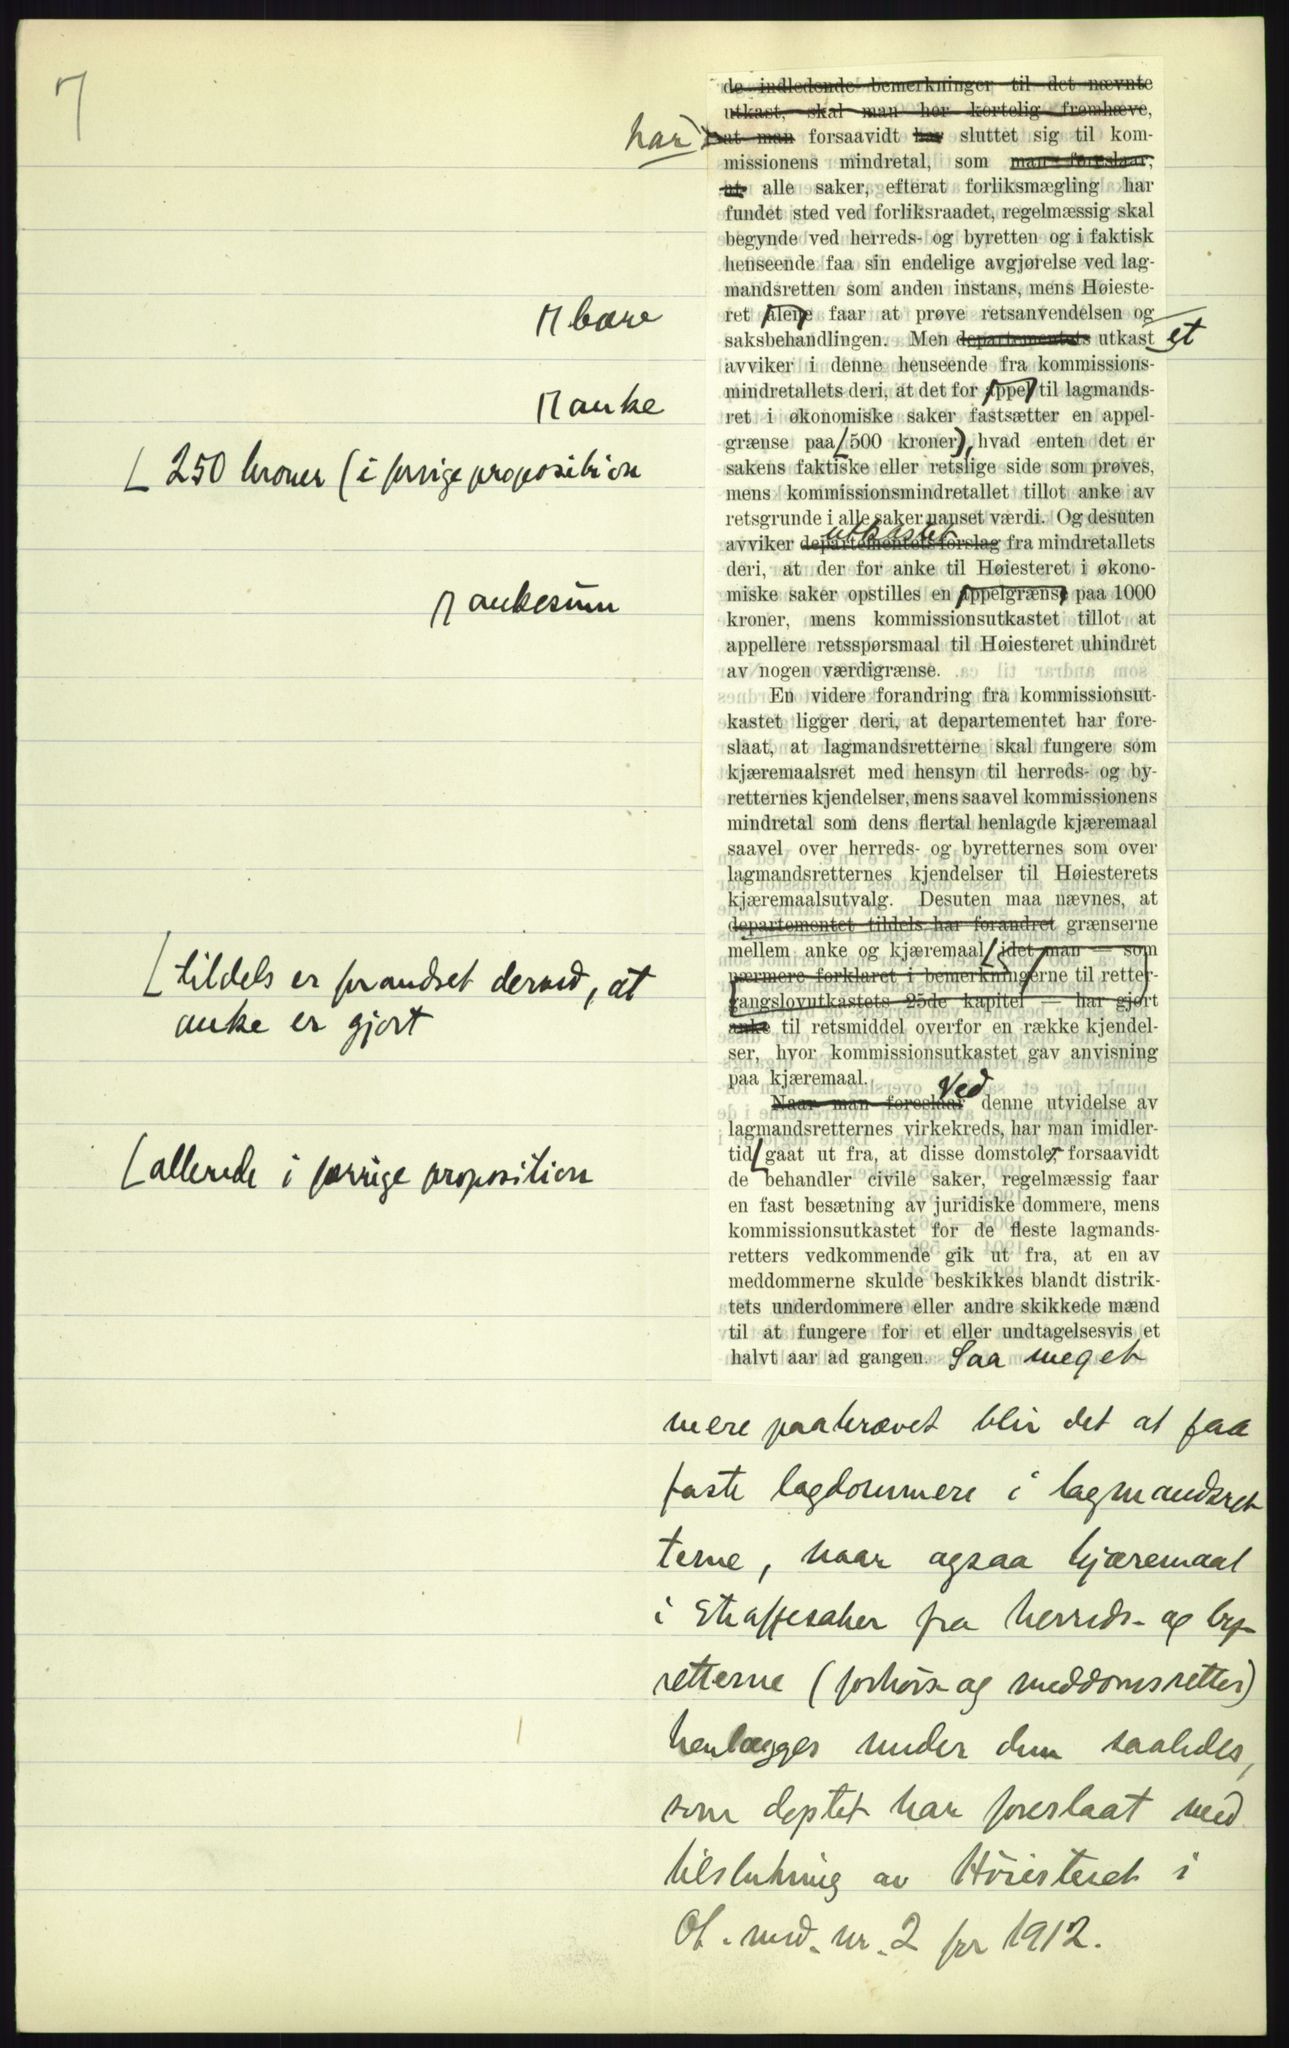 7
de indledende bemerkninger til det nævnte
utkast, skal man her kortelig fremhæve,
har
at man forsaavidt har sluttet sig til kom-
missionens mindretal, som man foreslaar,
at alle saker, efterat forliksmægling har
fundet sted ved forliksraadet, regelmæssig skal
begynde ved herreds- og byretten og i faktisk
henseende faa sin endelige avgjørelse ved lag-
mandsretten som anden instans, mens Høieste-
bare
ret alene faar at prøve retsanvendelsen og
saksbehandlingen. Men departementets utkast et
avviker i denne henseende fra kommissions-
mindretallets deri, at det for appel til lagmands-
anke
ret i økonomiske saker fastsætter en appel-
grænse paa 500 kroner), hvad enten det er
250 kroner (i forrige proposition
sakens faktiske eller retslige side som prøves,
mens kommissionsmindretallet tillot anke av
retsgrunde i alle saker uanset værdi. Og desuten
utkastet
avviker departementets forslag fra mindretallets
deri, at der for anke til Høiesteret i økono-
miske saker opstilles en appelgrænse paa 1000
ankesum
kroner, mens kommissionsutkastet tillot at
appellere retsspørsmaal til Høiesteret uhindret
av nogen værdigrænse.
En videre forandring fra kommissionsut-
kastet ligger deri, at departementet har fore-
slaat, at lagmandsretterne skal fungere som
kjæremaalsret med hensyn til herreds- og by-
retternes kjendelser, mens saavel kommissionens
mindretal som dens flertal henlagde kjæremaal
saavel over herreds- og byretternes som over
lagmandsretternes kjendelser til Høiesterets
kjæremaalsutvalg. Desuten maa nævnes, at
departementet tildels har forandret grænserne
mellem anke og kjæremaal, idet man — som
tildels er forandret derved, at
nærmere forklaret i bemerkningerne til retter-
gangslovutkastets 25de kapitel — har gjort
anke er gjort
anke til retsmiddel overfor en række kjendel-
ser, hvor kommissionsutkastet gav anvisning
paa kjæremaal.
Ved
Naar man foreslaar denne utvidelse av
lagmandsretternes virkekreds, har man imidler-
tid gaat ut fra, at disse domstoler forsaavidt
allerede i forrige proposition
de behandler civile saker, regelmæssig faar
en fast besætning av juridiske dommere, mens
kommissionsutkastet for de fleste lagmands-
retters vedkommende gik ut fra, at en av
meddommerne skulde beskikkes blandt distrik-
tets underdommere eller andre skikkede mænd
til at fungere for et eller undtagelsesvis et
halvt aar ad gangen. Saa meget
mere paakrævet blir det at faa
faste lagdommere i lagmandsret
terne, naar ogsaa kjæremaal
i straffesaker fra herreds- og by-
retterne (forhørs- og meddomsretter)
henlægges under dem saaledes,
som deptet har foreslaat med
tilslutning av Høiesteret i
Ot. med. nr. 2 for 1912.